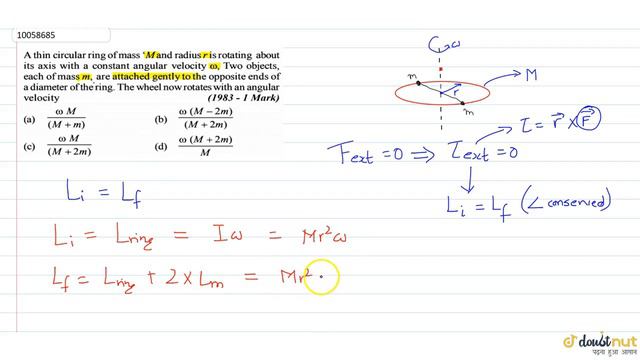 10058685
A thin circular ring of mass 'M and radius r is rotating about
its axis with a constant angular velocity ω, Two objects,
each of mass m, are attached gently to the opposite ends of
a diameter of the ring. The wheel now rotates with an angular
velocity (1983 - 1 Mark)
(a) ω M / (M + m) (b) ω (M – 2m) / (M + 2m)
(c) ω M / (M + 2m) (d) ω (M + 2m) / M
ω
m r M
m
τ = r⃗ × F⃗
Fext = 0 ⇒ τext = 0
Li = Lf (∠ conserved)
Li = Lf
Li = Lring = Iω = Mr²ω
Lf = Lring + 2 × Lm = Mr² ·
doubtnut
पढ़ना हुआ आसान